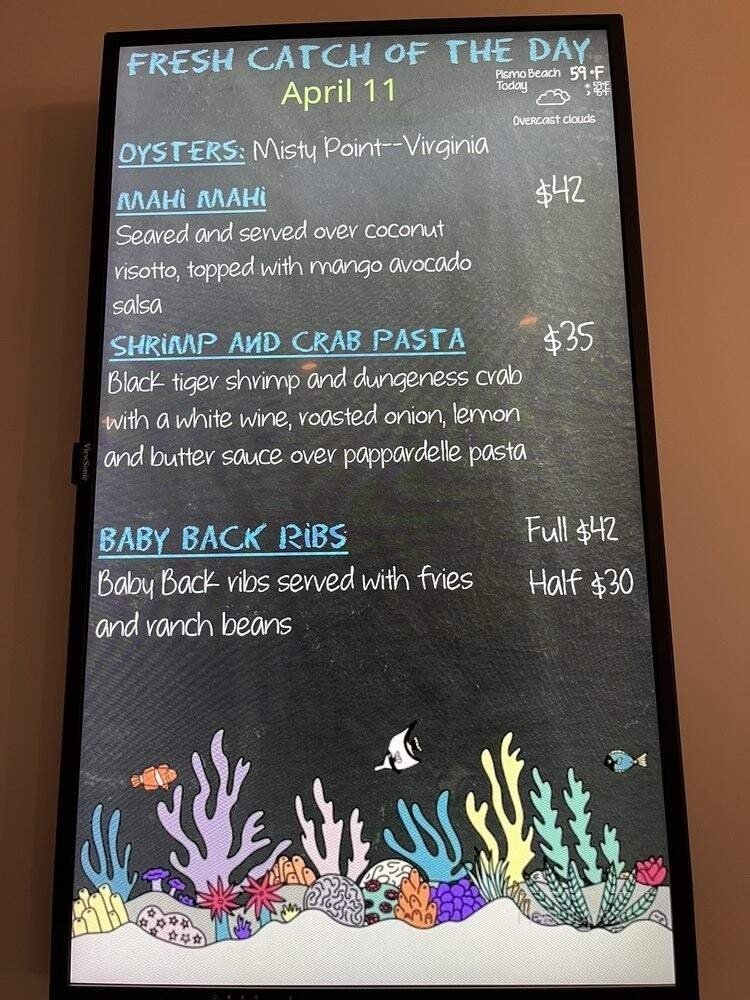 FRESH CATCH OF THE DAY
April 11
Pismo Beach 59°F
Today
Overcast clouds
OYSTERS: Misty Point--Virginia
MAHI MAHI $42
Seared and served over coconut
risotto, topped with mango avocado
salsa
SHRIMP AND CRAB PASTA $35
Black tiger shrimp and dungeness crab
with a white wine, roasted onion, lemon
and butter sauce over pappardelle pasta
BABY BACK RIBS Full $42
Baby Back ribs served with fries Half $30
and ranch beans
ViewSonic